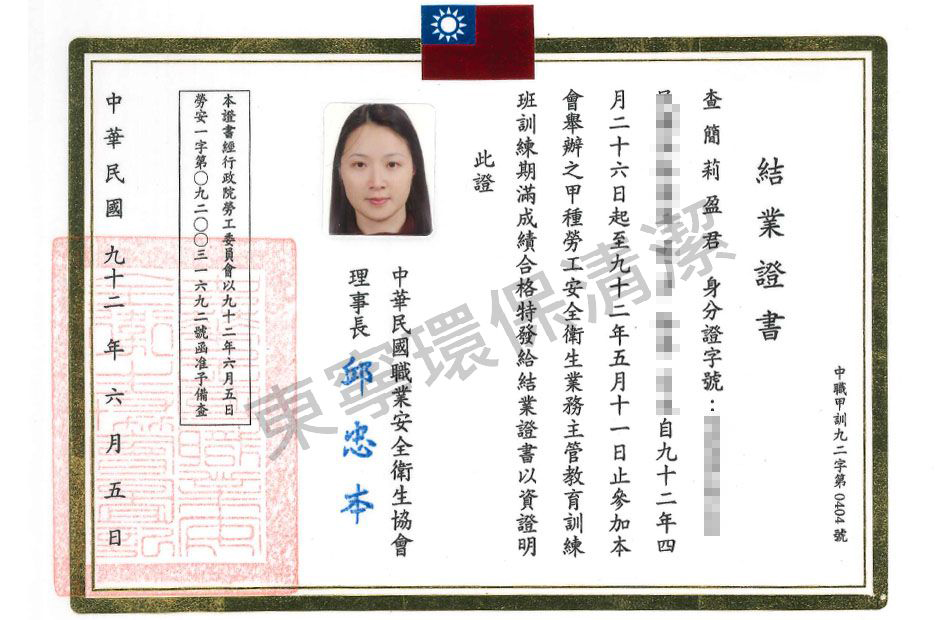 結業證書
中職甲訓九二字第0404號
查簡莉盈君 身分證字號：
自九十二年四
月二十六日起至九十二年五月十一日止參加本
會舉辦之甲種勞工安全衛生業務主管教育訓練
班訓練期滿成績合格特發給結業證書以資證明
此證
中華民國職業安全衛生協會
理事長 邱忠本
本證書經行政院勞工委員會以九十二年六月五日
勞安一字第〇九二〇〇三一六九二號函准予備查
中華民國 九十二 年 六 月 五 日
東寧環保清潔